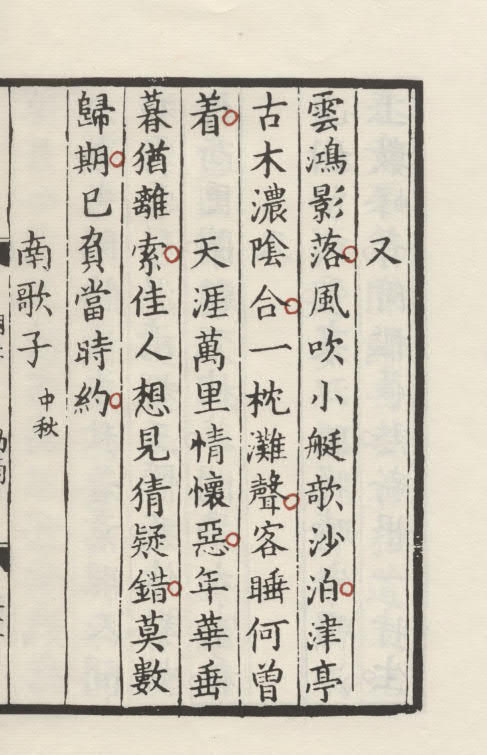 又
雲鴻影落風吹小艇歌沙泊津亭
古木濃陰合一枕灘聲客睡何曽
着　天涯萬里情懷惡年華垂
暮猶離索佳人想見猜疑錯莫數
歸期已負當時約
南歌子 中秋